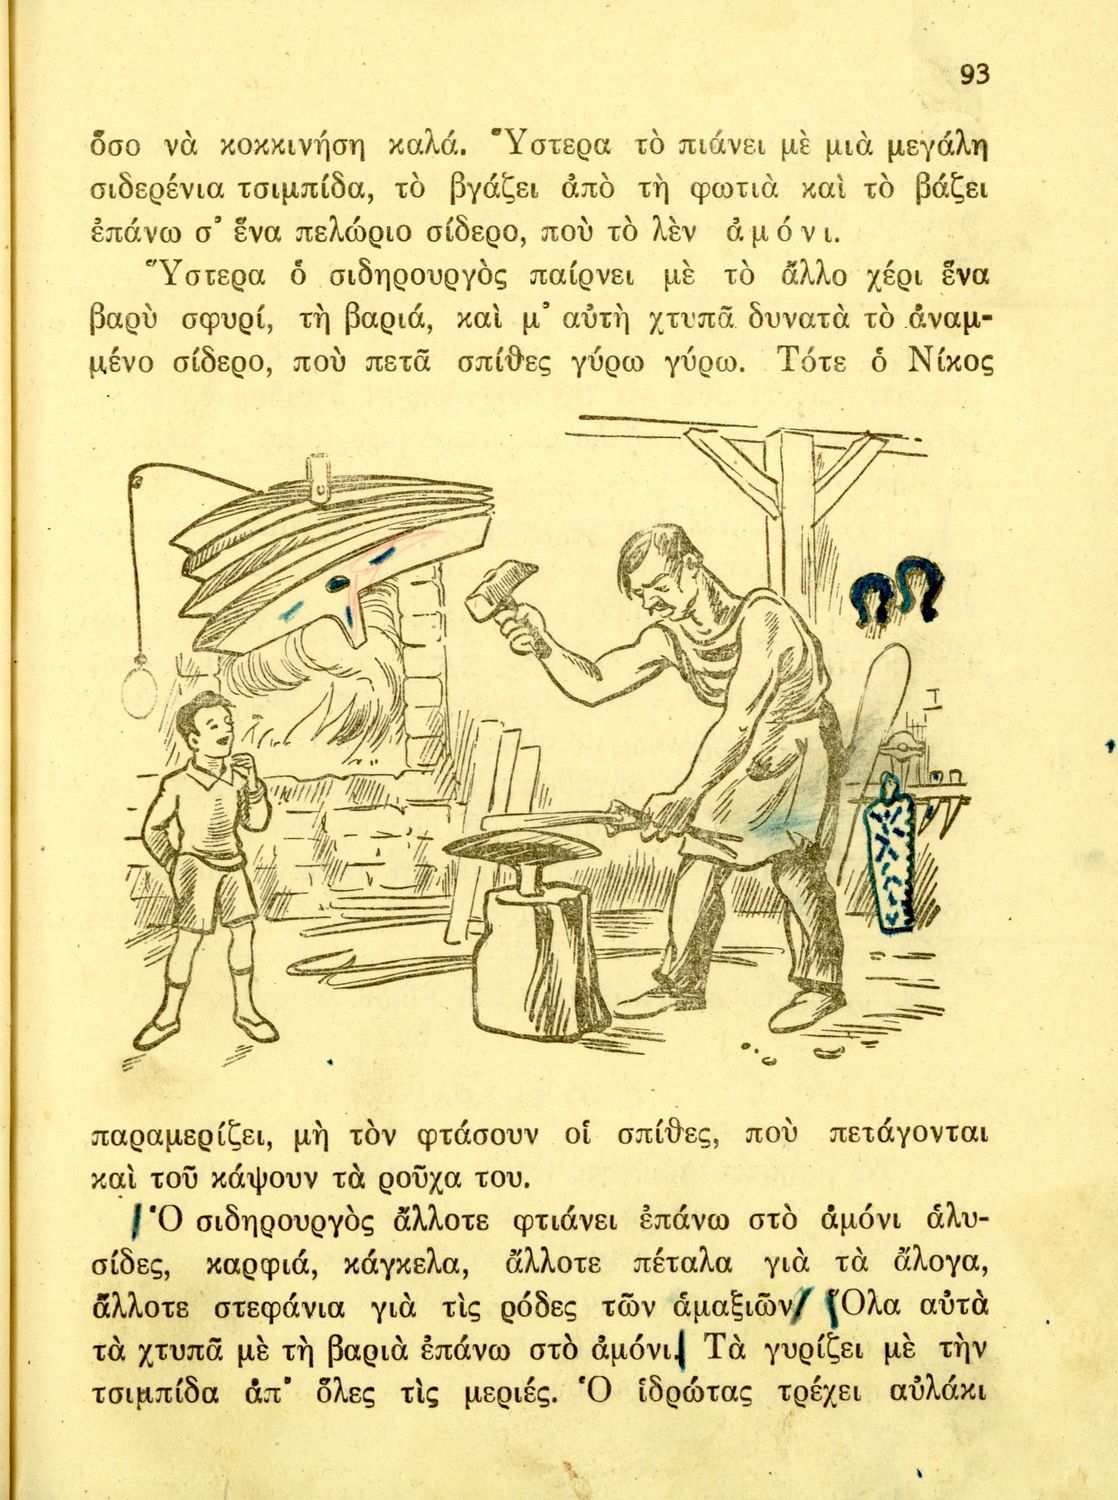 93
ὅσο νὰ κοκκινήση καλά. Ὕστερα τὸ πιάνει μὲ μιὰ μεγάλη
σιδερένια τσιμπίδα, τὸ βγάζει ἀπὸ τὴ φωτιὰ καὶ τὸ βάζει
ἐπάνω σ’ ἕνα πελώριο σίδερο, ποὺ τὸ λὲν ἀμόνι.
Ὕστερα ὁ σιδηρουργὸς παίρνει μὲ τὸ ἄλλο χέρι ἕνα
βαρὺ σφυρί, τὴ βαριά, καὶ μ’ αὐτὴ χτυπᾶ δυνατὰ τὸ ἀναμ-
μένο σίδερο, ποὺ πετᾶ σπίθες γύρω γύρω. Τότε ὁ Νίκος
παραμερίζει, μὴ τὸν φτάσουν οἱ σπίθες, ποὺ πετάγονται
καὶ τοῦ κάψουν τὰ ροῦχα του.
Ὁ σιδηρουργὸς ἄλλοτε φτιάνει ἐπάνω στὸ ἀμόνι ἁλυ-
σίδες, καρφιά, κάγκελα, ἄλλοτε πέταλα γιὰ τὰ ἄλογα,
ἄλλοτε στεφάνια γιὰ τὶς ρόδες τῶν ἁμαξιῶν. Ὅλα αὐτὰ
τὰ χτυπᾶ μὲ τὴ βαριὰ ἐπάνω στὸ ἀμόνι. Τὰ γυρίζει μὲ τὴν
τσιμπίδα ἀπ’ ὅλες τὶς μεριές. Ὁ ἱδρώτας τρέχει αὐλάκι